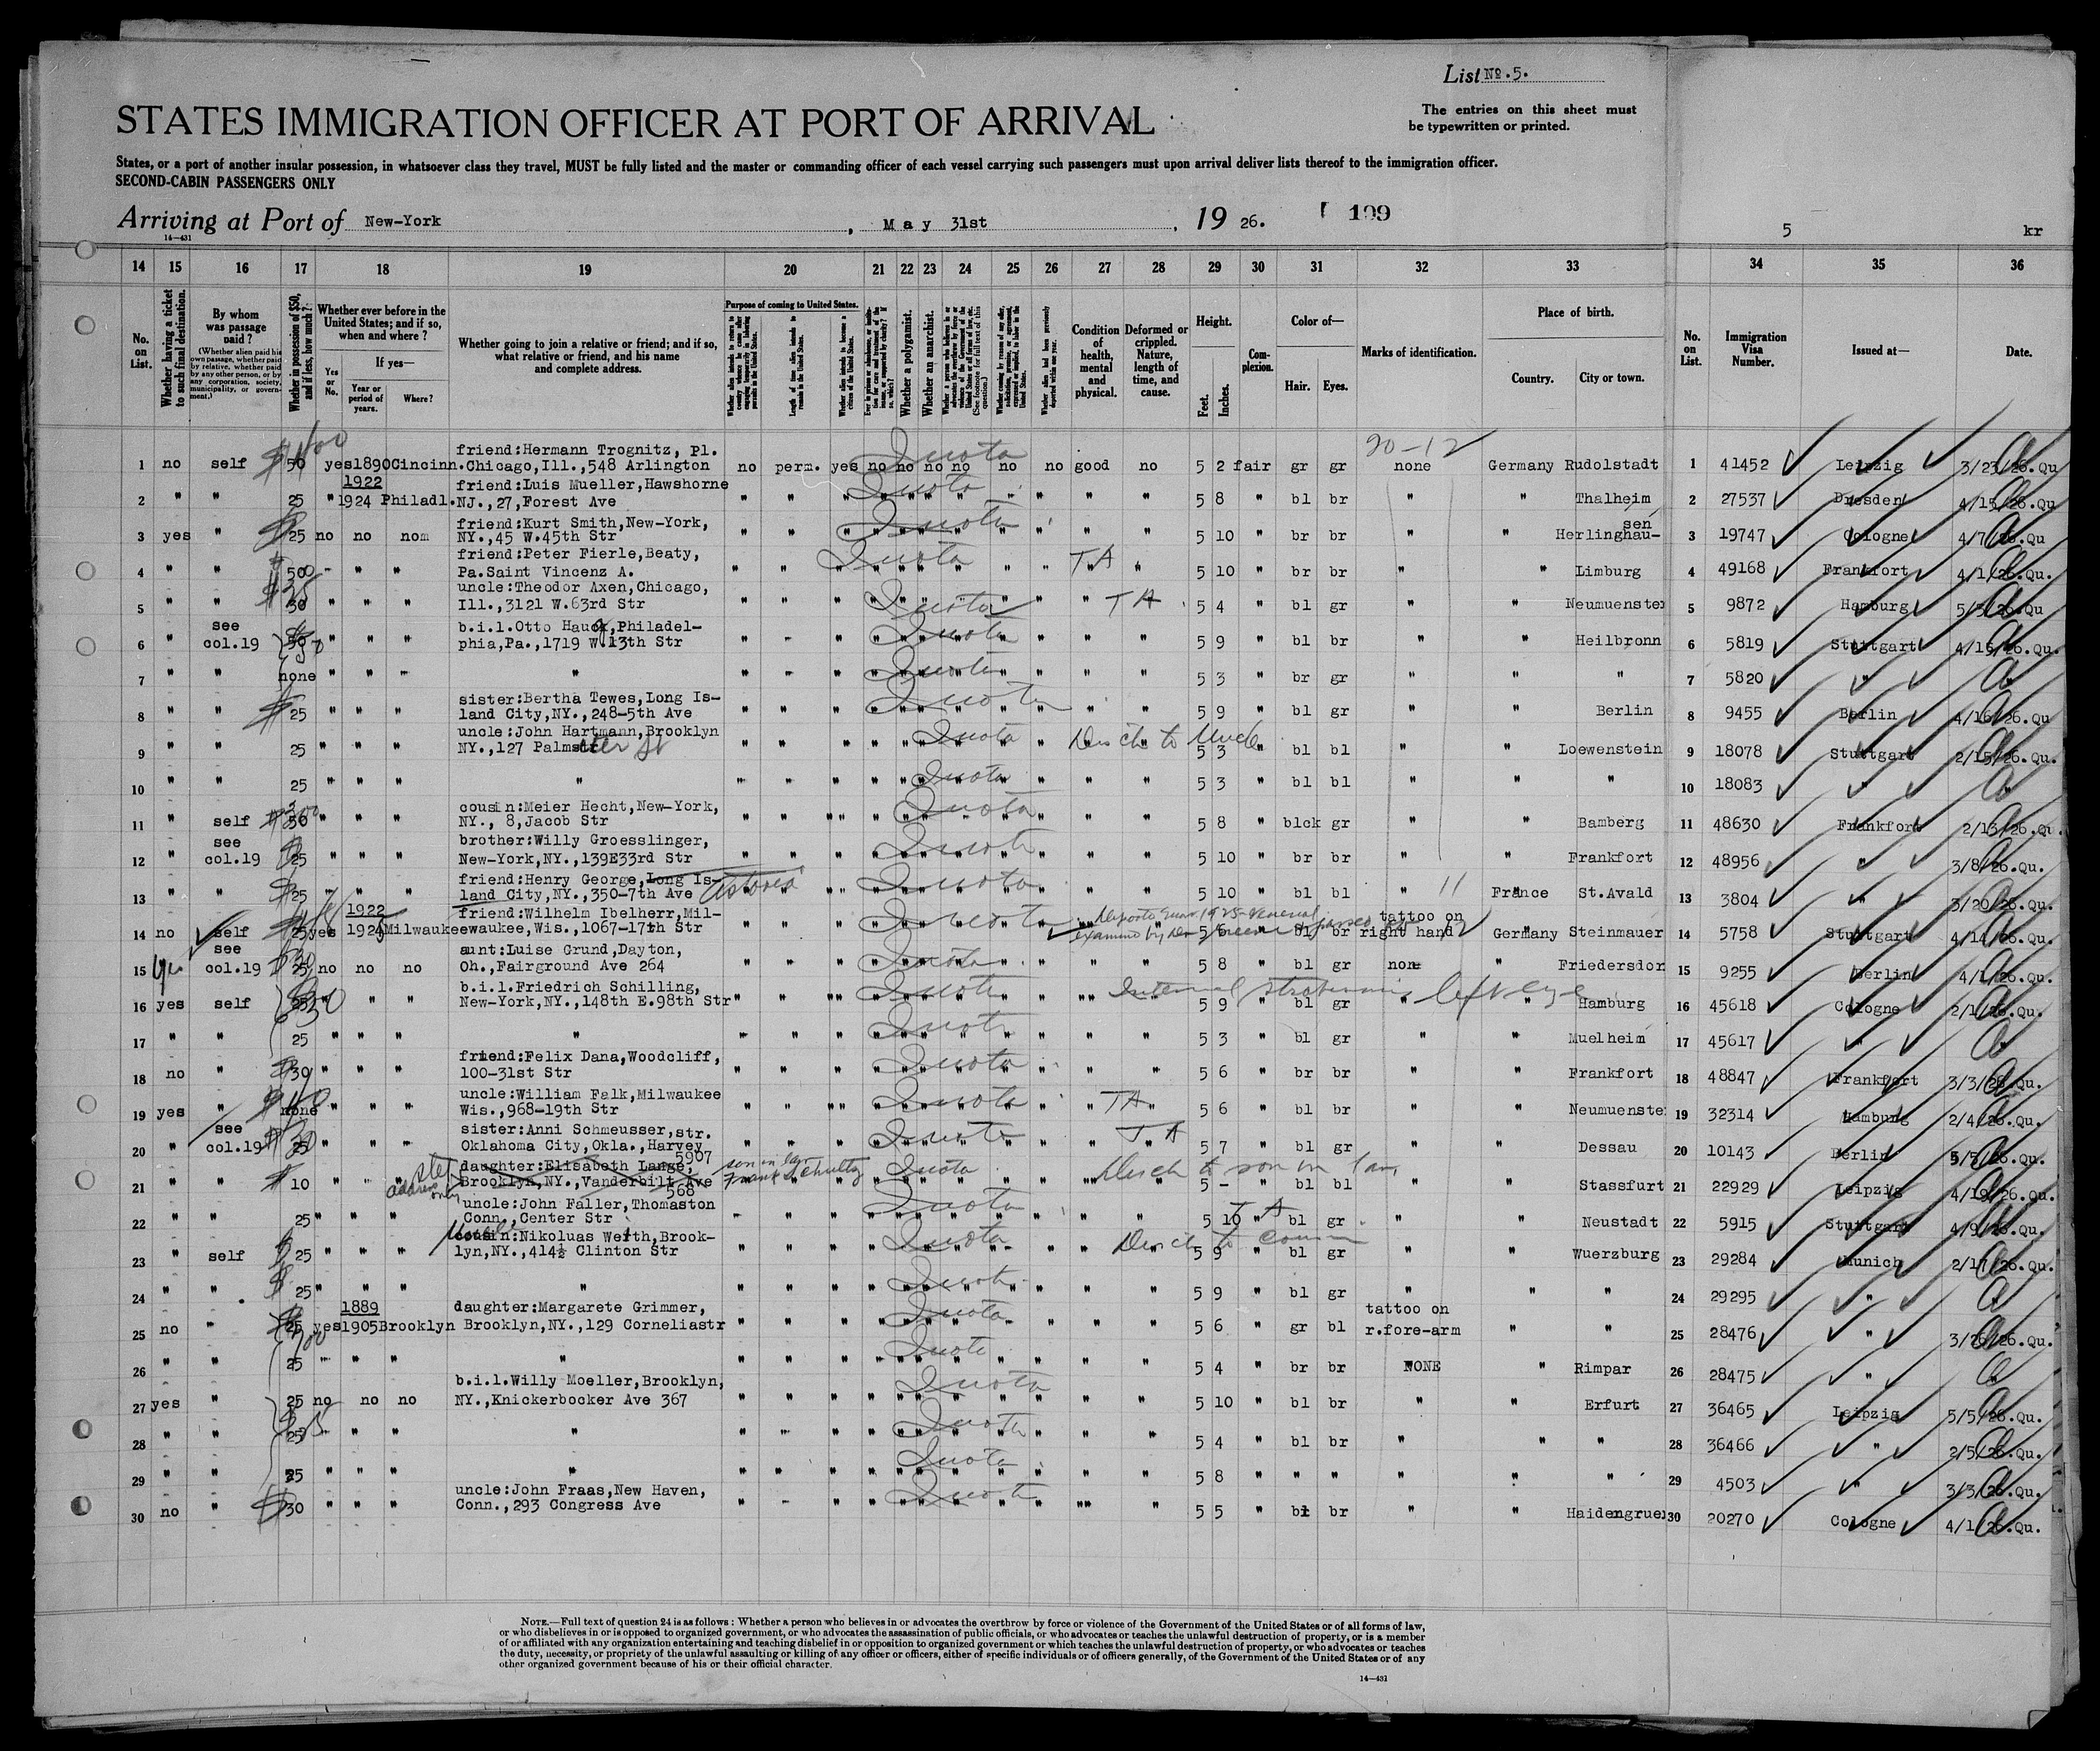 List No. 5.
STATES IMMIGRATION OFFICER AT PORT OF ARRIVAL
The entries on this sheet must
be typewritten or printed.
States, or a port of another insular possession, in whatsoever class they travel, MUST be fully listed and the master or commanding officer of each vessel carrying such passengers must upon arrival deliver lists thereof to the immigration officer.
SECOND-CABIN PASSENGERS ONLY
Arriving at Port of New-York, May 31st, 19 26. 199
14—431
5 kr
14 15 16 17 18 19 20 21 22 23 24 25 26 27 28 29 30 31 32 33 34 35 36
No. on List.
Whether having a ticket to such final destination.
By whom was passage paid?
(Whether alien paid his own passage, whether paid by relative, whether paid by any other person, or by any corporation, society, municipality, or government.)
Whether in possession of $50, and if less, how much?
Whether ever before in the United States; and if so, when and where?
Yes or No.
If yes—
Year or period of years.
Where?
Whether going to join a relative or friend; and if so, what relative or friend, and his name and complete address.
Purpose of coming to United States.
Length of time alien intends to remain in the United States.
Whether a polygamist.
Whether an anarchist.
Condition of health, mental and physical.
Deformed or crippled. Nature, length of time, and cause.
Height.
Feet. Inches.
Complexion.
Color of—
Hair. Eyes.
Marks of identification.
Place of birth.
Country. City or town.
No. on List.
Immigration Visa Number.
Issued at—
Date.
20-12
1 no self $ 50 yes 1890 Cincinn. friend:Hermann Trognitz, Pl. Chicago,Ill.,548 Arlington no perm. yes no no no no no no good no 5 2 fair gr gr none Germany Rudolstadt 1 41452 Leipzig 3/23/26.Qu
Quota
2 " " 25 " 1922 1924 Philadl. friend:Luis Mueller,Hawshorne NJ.,27,Forest Ave 5 8 " bl br " " Thalheim 2 27537 Dresden 4/15/26.Qu
Quota
3 yes " 25 no no nom friend:Kurt Smith,New-York, NY.,45 W.45th Str 5 10 br br " " Herlinghausen 3 19747 Cologne 4/7/26.Qu
Quota
4 " " 500 " " " friend:Peter Fierle,Beaty, Pa.Saint Vincenz A. TA 5 10 " br br " " Limburg 4 49168 Frankfort 4/1/26.Qu.
Quota
5 " " 30 " " " uncle:Theodor Axen,Chicago, Ill.,3121 W.63rd Str TA 5 4 " bl gr " " Neumuenster 5 9872 Hamburg 5/5/26.Qu
Quota
6 " see col.19 50 " " " b.i.l.Otto Hauck,Philadelphia,Pa.,1719 W.13th Str 5 9 " bl br " " Heilbronn 6 5819 Stuttgart 4/15/26.Qu.
Quota
7 " " none " " " " 5 3 " br gr " " " 7 5820 "
Quota
8 " " $ 25 " " " sister:Bertha Tewes,Long Island City,NY.,248-5th Ave 5 9 " bl gr " " Berlin 8 9455 Berlin 4/16/26.Qu
Quota
9 " " 25 " " " uncle:John Hartmann,Brooklyn NY.,127 Palmstr Disch to Uncle 5 3 " bl bl " " Loewenstein 9 18078 Stuttgart 2/15/26.Qu.
Quota
10 " " 25 " " " " 5 3 " bl bl " " " 10 18083 "
Quota
11 " self 50 " " " cousin:Meier Hecht,New-York, NY., 8,Jacob Str 5 8 " blck gr " " Bamberg 11 48630 Frankfort 2/13/26.Qu.
Quota
12 " see col.19 25 " " " brother:Willy Groesslinger, New-York,NY.,139E33rd Str 5 10 " br br " " Frankfort 12 48956 " 3/8/26.Qu.
Quota
13 " " 25 " " " friend:Henry George,Long Island City,NY.,350-7th Ave Astoria 5 10 " bl bl " 11 France St.Avald 13 3804 " 3/20/26.Qu.
Quota
14 no self 25 yes 1922 Milwaukee friend:Wilhelm Ibelherr,Milwaukee,Wis.,1067-17th Str 5 bl br tattoo on right hand Germany Steinmauer 14 5758 Stuttgart 4/14/26.Qu.
15 yes see col.19 25 no no no aunt:Luise Grund,Dayton, Oh.,Fairground Ave 264 5 8 " bl gr none " Friedersdor 15 9255 Berlin 4/1/26.Qu.
Quota
16 yes self " " b.i.l.Friedrich Schilling, New-York,NY.,148th E.98th Str left eye 5 9 " bl gr " " Hamburg 16 45618 Cologne 2/1/26.Qu.
Quota
17 " " 25 " " " " 5 3 " bl gr " " Muelheim 17 45617 "
Quota
18 no " 30 " " " friend:Felix Dana,Woodcliff, 100-31st Str 5 6 " br br " " Frankfort 18 48847 Frankfort 3/3/26.Qu.
Quota
19 yes " none " " " uncle:William Falk,Milwaukee Wis.,968-19th Str TA 5 6 " bl br " " Neumuenste 19 32314 Hamburg 2/4/26.Qu.
Quota
20 " see col.19 25 " " " sister:Anni Schmeusser,str. Oklahoma City,Okla.,Harvey 5907 TA 5 7 " bl gr " " Dessau 20 10143 Berlin 5/5/26.Qu.
Quota
21 " " $ 10 " " step daughter:Elisabeth Lange, Brooklyn,NY.,Vanderbilt Ave 568 address only son in law Frank Schultz Disch to son in law 5 - " bl bl " " Stassfurt 21 22929 Leipzig 4/19/26.Qu.
Quota
22 " " 25 " " " uncle:John Faller,Thomaston Conn.,Center Str TA 5 10 " bl gr " " Neustadt 22 5915 Stuttgart 4/9/26.Qu.
Quota
23 " self 25 " " " cousin:Nikoluas Weith,Brooklyn,NY.,414½ Clinton Str Disch to cousin 5 9 " bl gr " " Wuerzburg 23 29284 Munich 2/17/26.Qu.
Quota
24 " " 25 " " " " 5 9 " bl gr " " " 24 29295 "
Quota
25 no " 25 yes 1889 1905 Brooklyn daughter:Margarete Grimmer, Brooklyn,NY.,129 Corneliastr 5 6 " gr bl tattoo on r.fore-arm " " 25 28476 " 3/26/26.Qu.
Quota
26 " " 25 " " " " 5 4 " br br NONE " Rimpar 26 28475 "
Quota
27 yes " 25 no no no b.i.l.Willy Moeller,Brooklyn, NY.,Knickerbocker Ave 367 5 10 " bl br " " Erfurt 27 36465 Leipzig 5/5/26.Qu.
Quota
28 " " 25 " " " " 5 4 " bl br " " " 28 36466 " 2/5/26.Qu.
Quota
29 " " 25 " " " " 5 8 " " " " " " 29 4503 " 3/3/26.Qu.
Quota
30 no " $ 30 " " " uncle:John Fraas,New Haven, Conn.,293 Congress Ave 5 5 " bl br " " Haidengrue 30 20270 Cologne 4/1/26.Qu.
Quota
NOTE.—Full text of question 24 is as follows: Whether a person who believes in or advocates the overthrow by force or violence of the Government of the United States or of all forms of law,
or who disbelieves in or is opposed to organized government, or who advocates the assassination of public officials, or who advocates or teaches the unlawful destruction of property, or is a member
of or affiliated with any organization entertaining and teaching disbelief in or opposition to organized government or which teaches the unlawful destruction of property, or who advocates or teaches
the duty, necessity, or propriety of the unlawful assaulting or killing of any officer or officers, either of specific individuals or of officers generally, of the Government of the United States or of any
other organized government because of his or their official character.
14—431